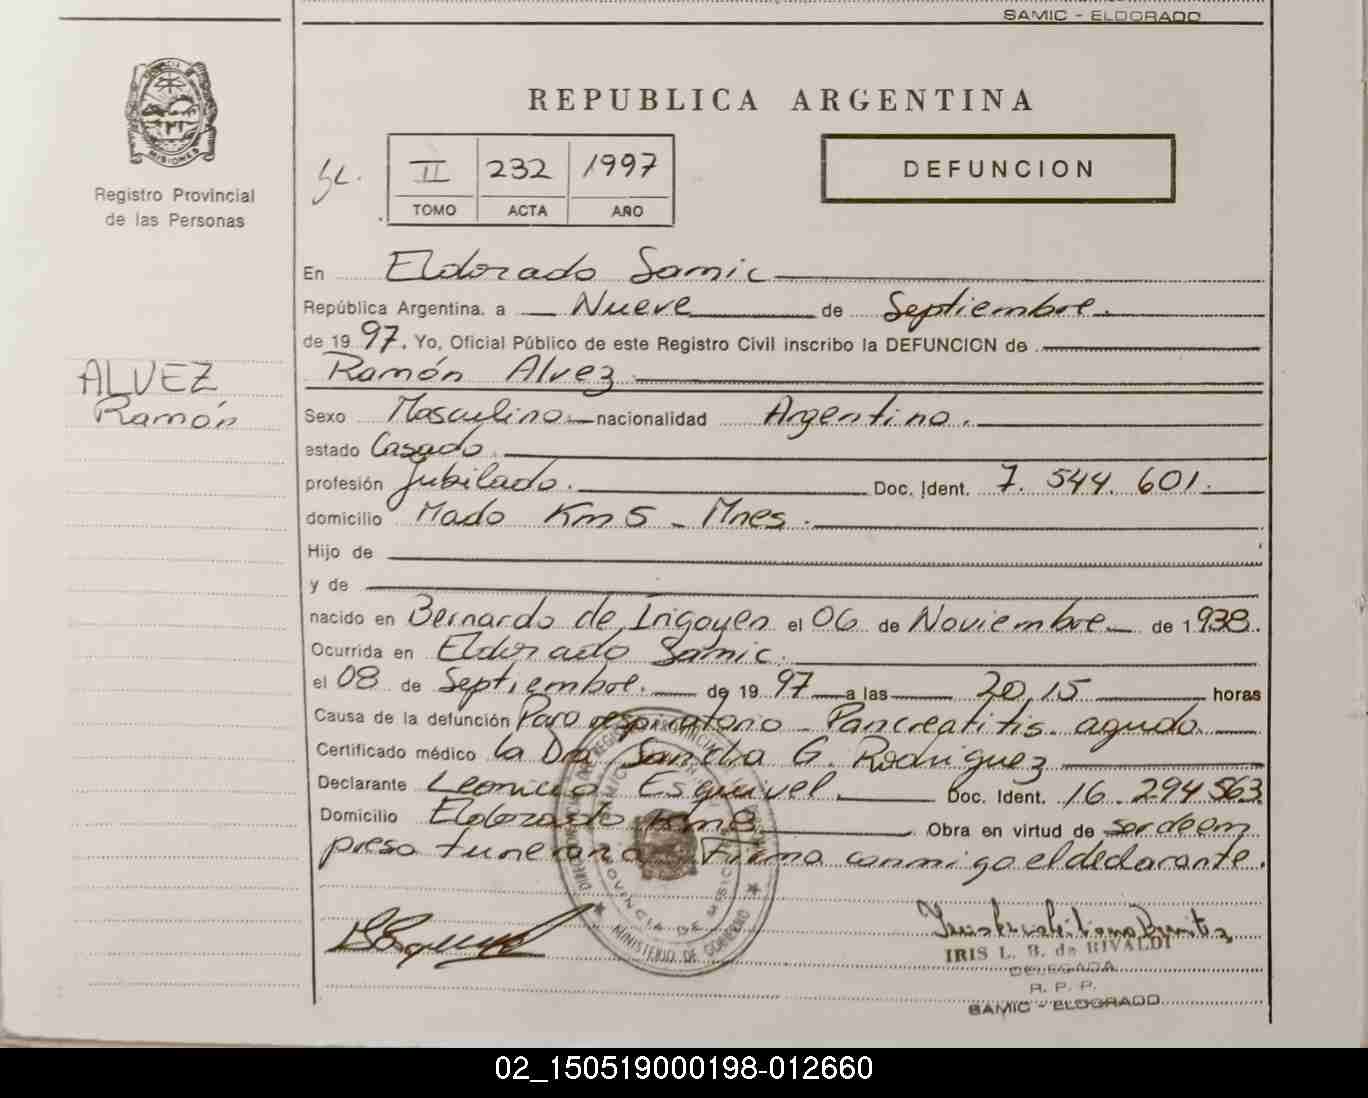 SAMIC - ELDORADO
PROVINCIA
MISIONES
Registro Provincial
de las Personas
REPUBLICA ARGENTINA
II 232 1997
TOMO ACTA AÑO
DEFUNCION
En Eldorado Samic
República Argentina. a Nueve de Septiembre.
de 1997. Yo, Oficial Público de este Registro Civil inscribo la DEFUNCION de
ALVEZ
Ramón
Ramón Alvez
Sexo Masculino nacionalidad Argentino.
estado Casado.
profesión Jubilado. Doc. Ident. 7. 544. 601.
domicilio Mado Km 5 - Mnes.
Hijo de
y de
nacido en Bernardo de Irigoyen el 06 de Noviembre de 1938.
Ocurrida en Eldorado Samic.
el 08 de Septiembre. de 1997 a las 20,15 horas
Causa de la defunción Paro respiratorio - Pancreatitis aguda.
Certificado médico la Dra Sandra G. Rodriguez
Declarante Leoncio Esquivel. Doc. Ident. 16.294563
Domicilio Eldorado km8 Obra en virtud de ser de em
presa funeraria Firma conmigo el declarante.
PROVINCIA DE MISIONES
MINISTERIO DE GOBIERNO
IRIS L. B. de RIVALDI
DELEGADA
R. P. P.
SAMIC - ELDORADO
02_150519000198-012660